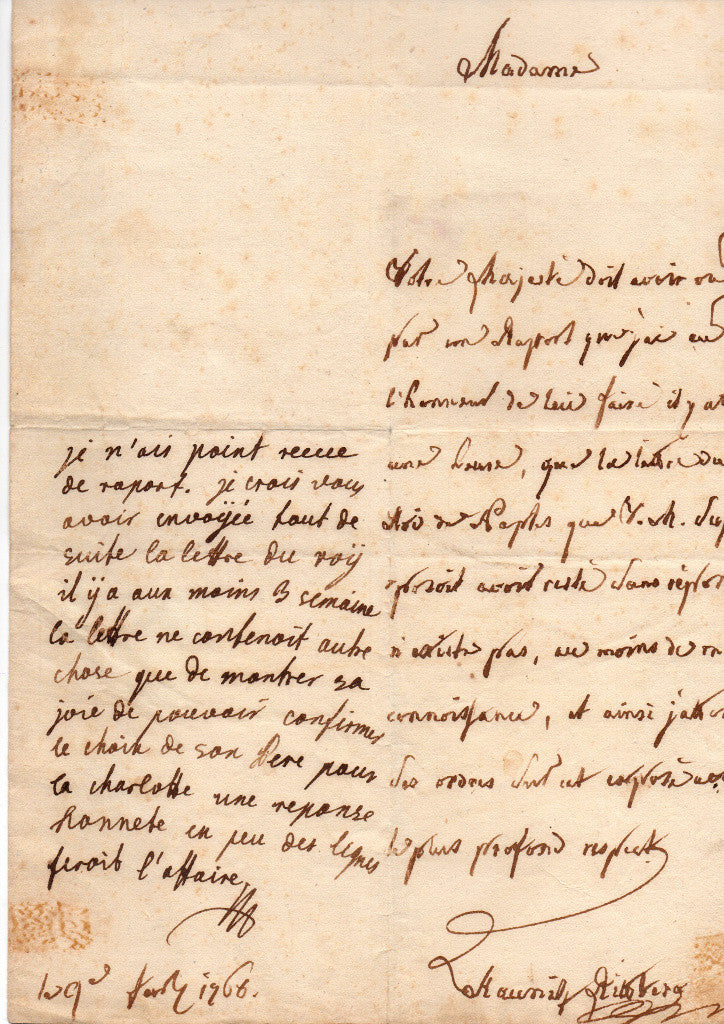 Madame
Votre Majesté doit avoir
par mon Raport que j'ai eu
l'honneur de lui faire il y a
une heure, que la lettre du
Roi de Naples que V. M. sup
posoit avoir resté sans répon
n'existe pas, au moins de m
connoissance, et ainsi j'atten
des ordres sur cet
le plus profond respect
Kaunitz Rittberg
je n'ais point receue
de raport. je crois vous
avoir envoÿée tout de
suite la lettre du roÿ
il ÿ a aux moins 3 semaine
la lettre ne contenoit autre
chose que de montrer sa
joie de pouvoir confirmer
le choix de son Pere pour
la charlotte une reponse
honnete en peu des lignes
feroit l'affaire
le 9 1768.